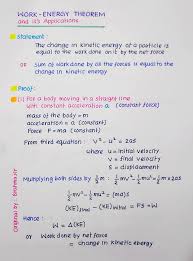 WORK-ENERGY THEOREM
and its Applications
Statement
The change in kinetic energy of a particle is
equal to the work done on it by the net force
OR Sum of work done by all the forces is equal to the
change in kinetic energy
Proof:
(1) for a body moving in a straight line
with constant acceleration a (constant force)
mass of the body = m
acceleration = a (constant)
Force F = ma (constant)
From third equation : V² - u² = 2as
where u = initial velocity
v = final velocity
s = displacement
Multiplying both sides by ½m : ½mv² - ½mu² = ½m·2as
½mv² - ½mu² = (ma)s
(KE)final - (KE)initial = FS = W
Hence :
W = Δ(KE)
or Work done by net force
= change in kinetic energy
Original by: